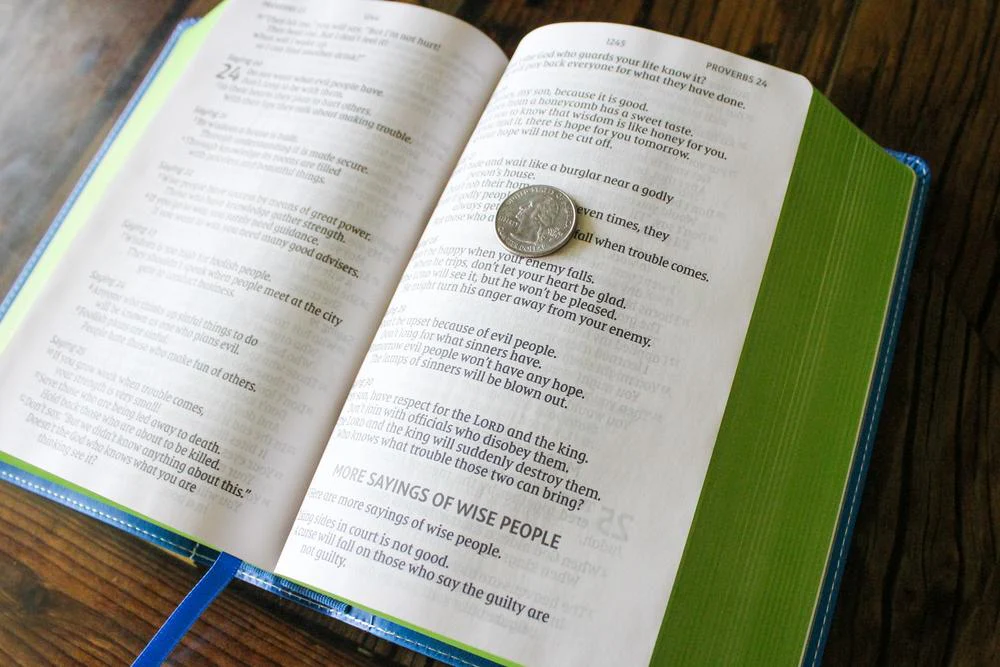 PROVERBS 23
"They hit me," you will say. "But I'm not hurt!
They beat me, but I don't feel it!
When will I wake up
so I can find another drink?"
Saying 20
24 Do not want what evil people have.
Don't long to be with them.
In their hearts they plan to hurt others.
With their lips they talk about making trouble.
Saying 21
By wisdom a house is built.
Through understanding it is made secure.
Through knowledge its rooms are filled
with priceless and beautiful things.
Saying 22
Wise people have success by means of great power.
Those who have knowledge gather strength.
If you go to war, you need guidance.
If you want to win, you need many good advisers.
Saying 23
Wisdom is too high for foolish people.
They shouldn't speak when people meet at the city
gate to conduct business.
Saying 24
Anyone who thinks up sinful things to do
will be known as one who plans evil.
Foolish plans are sinful.
People hate those who make fun of others.
Saying 25
If you grow weak when trouble comes,
your strength is very small!
Save those who are being led away to death.
Hold back those who are about to be killed.
Don't say, "But we didn't know anything about this."
Doesn't the God who knows what you are
thinking see it?
1245
PROVERBS 24
God who guards your life know it?
pay back everyone for what they have done.
my son, because it is good.
from a honeycomb has a sweet taste.
to know that wisdom is like honey for you.
find it, there is hope for you tomorrow.
hope will not be cut off.
hide and wait like a burglar near a godly
person's house.
Don't rob their home
godly people
even times, they
always get
those who
fall when trouble comes.
be happy when your enemy falls.
When he trips, don't let your heart be glad.
The LORD will see it, but he won't be pleased.
might turn his anger away from your enemy.
be upset because of evil people.
Don't long for what sinners have.
Tomorrow evil people won't have any hope.
The lamps of sinners will be blown out.
son, have respect for the LORD and the king.
Don't join with officials who disobey them.
The LORD and the king will suddenly destroy them.
Who knows what trouble those two can bring?
MORE SAYINGS OF WISE PEOPLE
Here are more sayings of wise people.
Taking sides in court is not good.
A curse will fall on those who say the guilty are
not guilty.